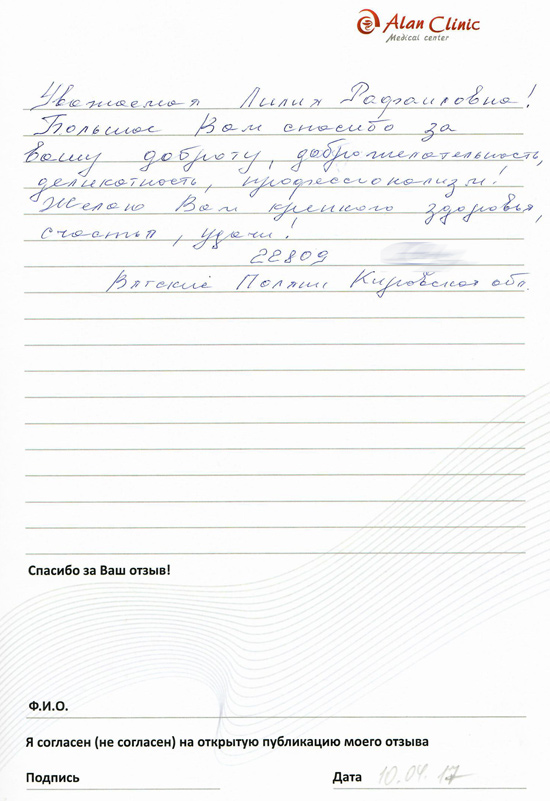 Alan Clinic
Medical center
Уважаемая Лилия Рафаиловна!
Большое Вам спасибо за
вашу доброту, доброжелательность,
деликатность, профессионализм!
Желаю Вам крепкого здоровья,
счастья, удачи!
22809
Вятские Поляны Кировская обл.
Спасибо за Ваш отзыв!
Ф.И.О.
Я согласен (не согласен) на открытую публикацию моего отзыва
Подпись
Дата 10.04.17